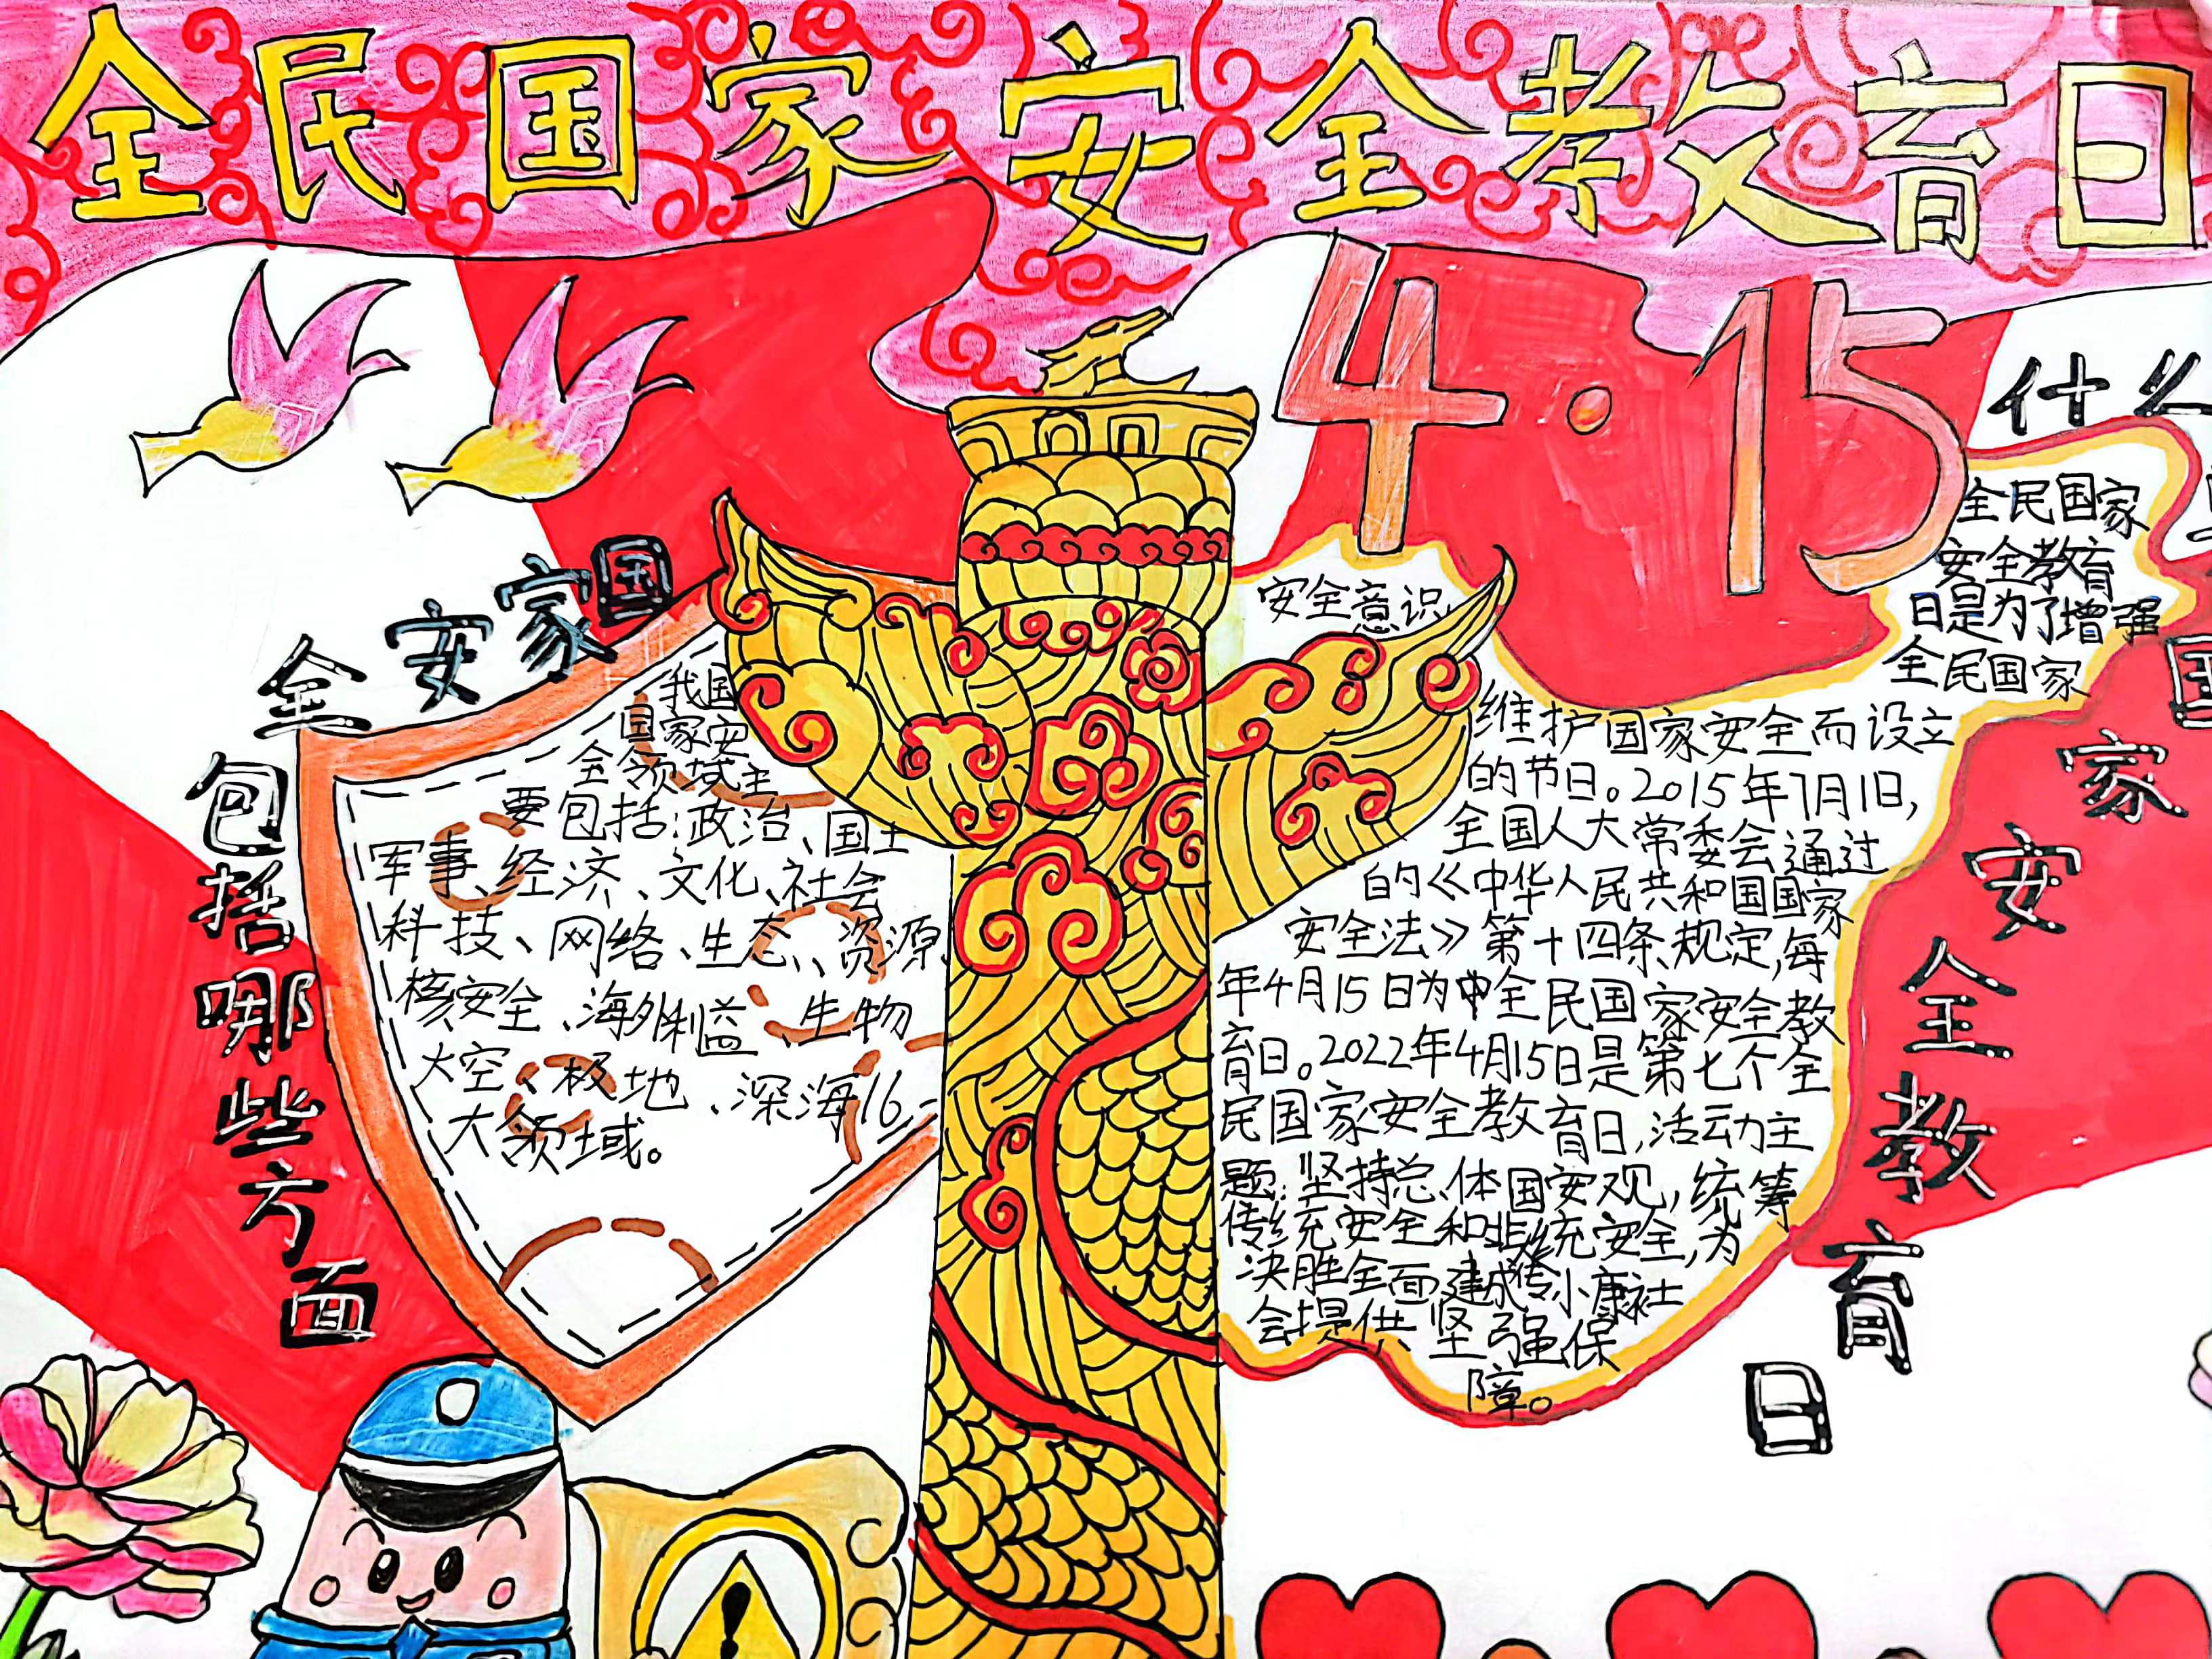 全民国家安全教育日
4·15
国家安全
包括哪些方面
我国
国家安
全领域主
要包括:政治、国土
军事、经济、文化、社会
科技、网络、生态、资源、
核安全、海外利益、生物
太空、极地、深海16
大领域。
什么
国家安全教育日
全民国家
安全教育
日是为了增强
全民国家
安全意识
维护国家安全而设立
的节日。2015年7月1日,
全国人大常委会通过
的《中华人民共和国国家
安全法》第十四条规定,每
年4月15日为全民国家安全教
育日。2022年4月15日是第七个全
民国家安全教育日,活动主
题:坚持总体国安观,统筹
传统安全和非传统安全,为
决胜全面建成小康社
会提供坚强保
障。